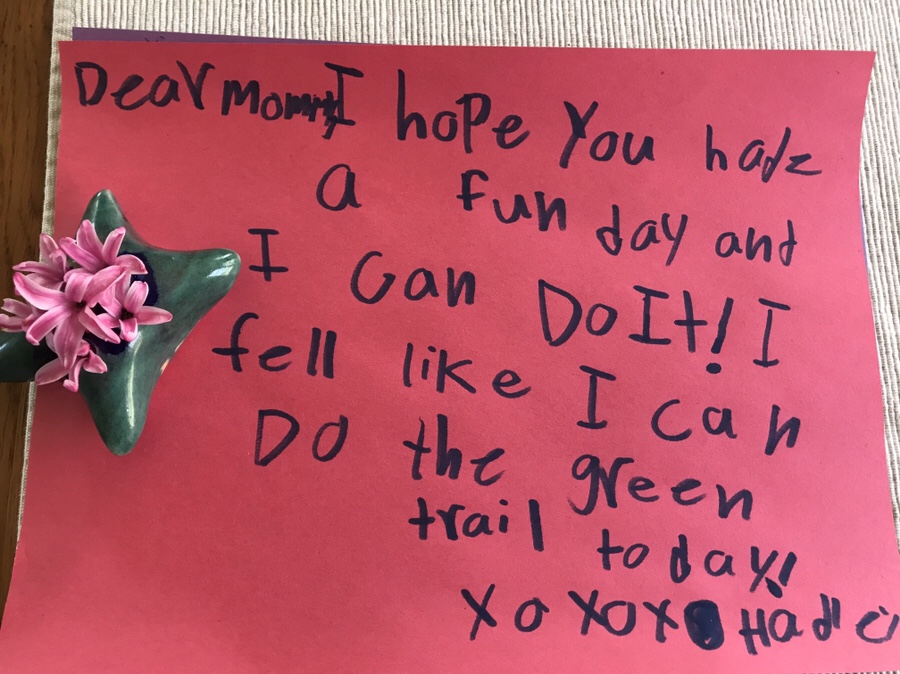 Dear Mommy I hope You had
a fun day and
I can Do It! I
fell like I can
Do the green
trail today!
XoXoXo Hadl